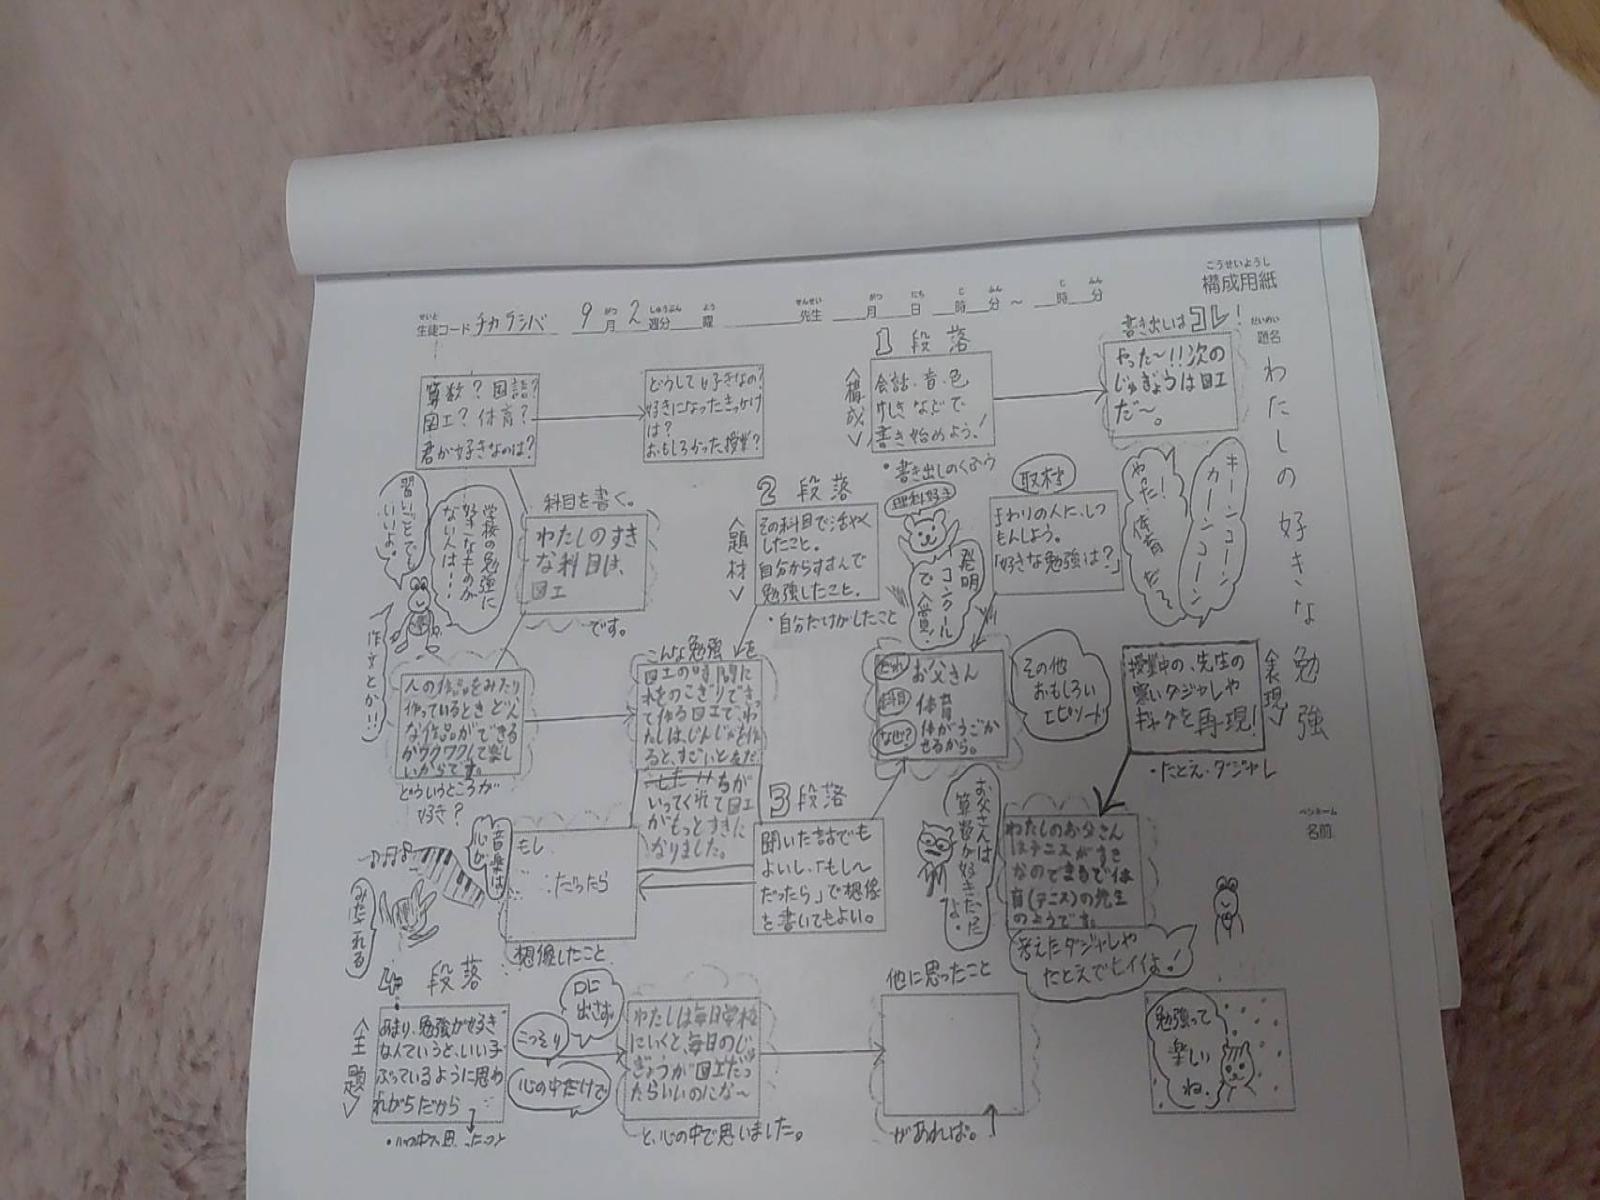 こうせいようし
構成用紙
せいと
生徒コード チカラシバ 9月2週分 曜 先生 月 日 時 分 ~ 時 分
だいめい
題名
わたしの好きな勉強
ペンネーム
名前
1段落
〈構成〉
会話、音、色
けしきなどで
書き始めよう!
・書き出しのくふう
書き出しはコレ!
やった~!!次の
じゅぎょうは図工
だ~。
キーンコーン
カーンコーン
やった!
体育だ
算数?国語?
図工?体育?
君が好きなのは?
どうして好きなの?
好きになったきっかけ
は?
おもしろかった授業?
科目を書く。
わたしのすき
な科目は、
図工
です。
学校の勉強に
好きなものが
ない人は…
習いごとでも
いいよ。
作文とか!!
人の作品をみたり
作っているときどん
な作品ができる
かワクワクして楽し
いからです。
どういうところが
好き?
2段落
〈題材〉
その科目で活やく
したこと。
自分からすすんで
勉強したこと。
・自分だけがしたこと
こんな勉強を
図工の時間に
れをのこぎりできっ
て作る図工で、わ
たしは、じんじゃを作
ると、すごいと友だ
ちが
いってくれて図工
がもっとすきに
なりました。
取材
まわりの人に、しつ
もんしよう。
「好きな勉強は?」
理科好き
発明
コンクール
で入賞!
だれ お父さん
科目 体育
なぜ? 体がうごか
せるから。
その他
おもしろい
エピソード
3段落
聞いた話でも
よいし、「もし~
だったら」で想像
を書いてもよい。
もし
だったら
想像したこと
音楽は
心が
お父さんは
算数が好きだった
よ。
〈表現〉
授業中の、先生の
寒いダジャレや
ギャグを再現!
・たとえ・ダジャレ
わたしのお父さん
はテニスがすき
なのでまるで体
育(テニス)の先生
のようです。
考えたダジャレや
たとえでヒイイよ!
4段落
〈主題〉
あまり、勉強が好き
なんていうと、いい子
ぶっているように思わ
れがちだから
・心の中で思ったこと
口に
出さず
こっそり
心の中だけで
わたしは毎日学校
にいくと、毎日のじゅ
ぎょうが図工だっ
たらいいのにな~
と、心の中で思いました。
他に思ったこと
があれば。
勉強って
楽しい
ね。